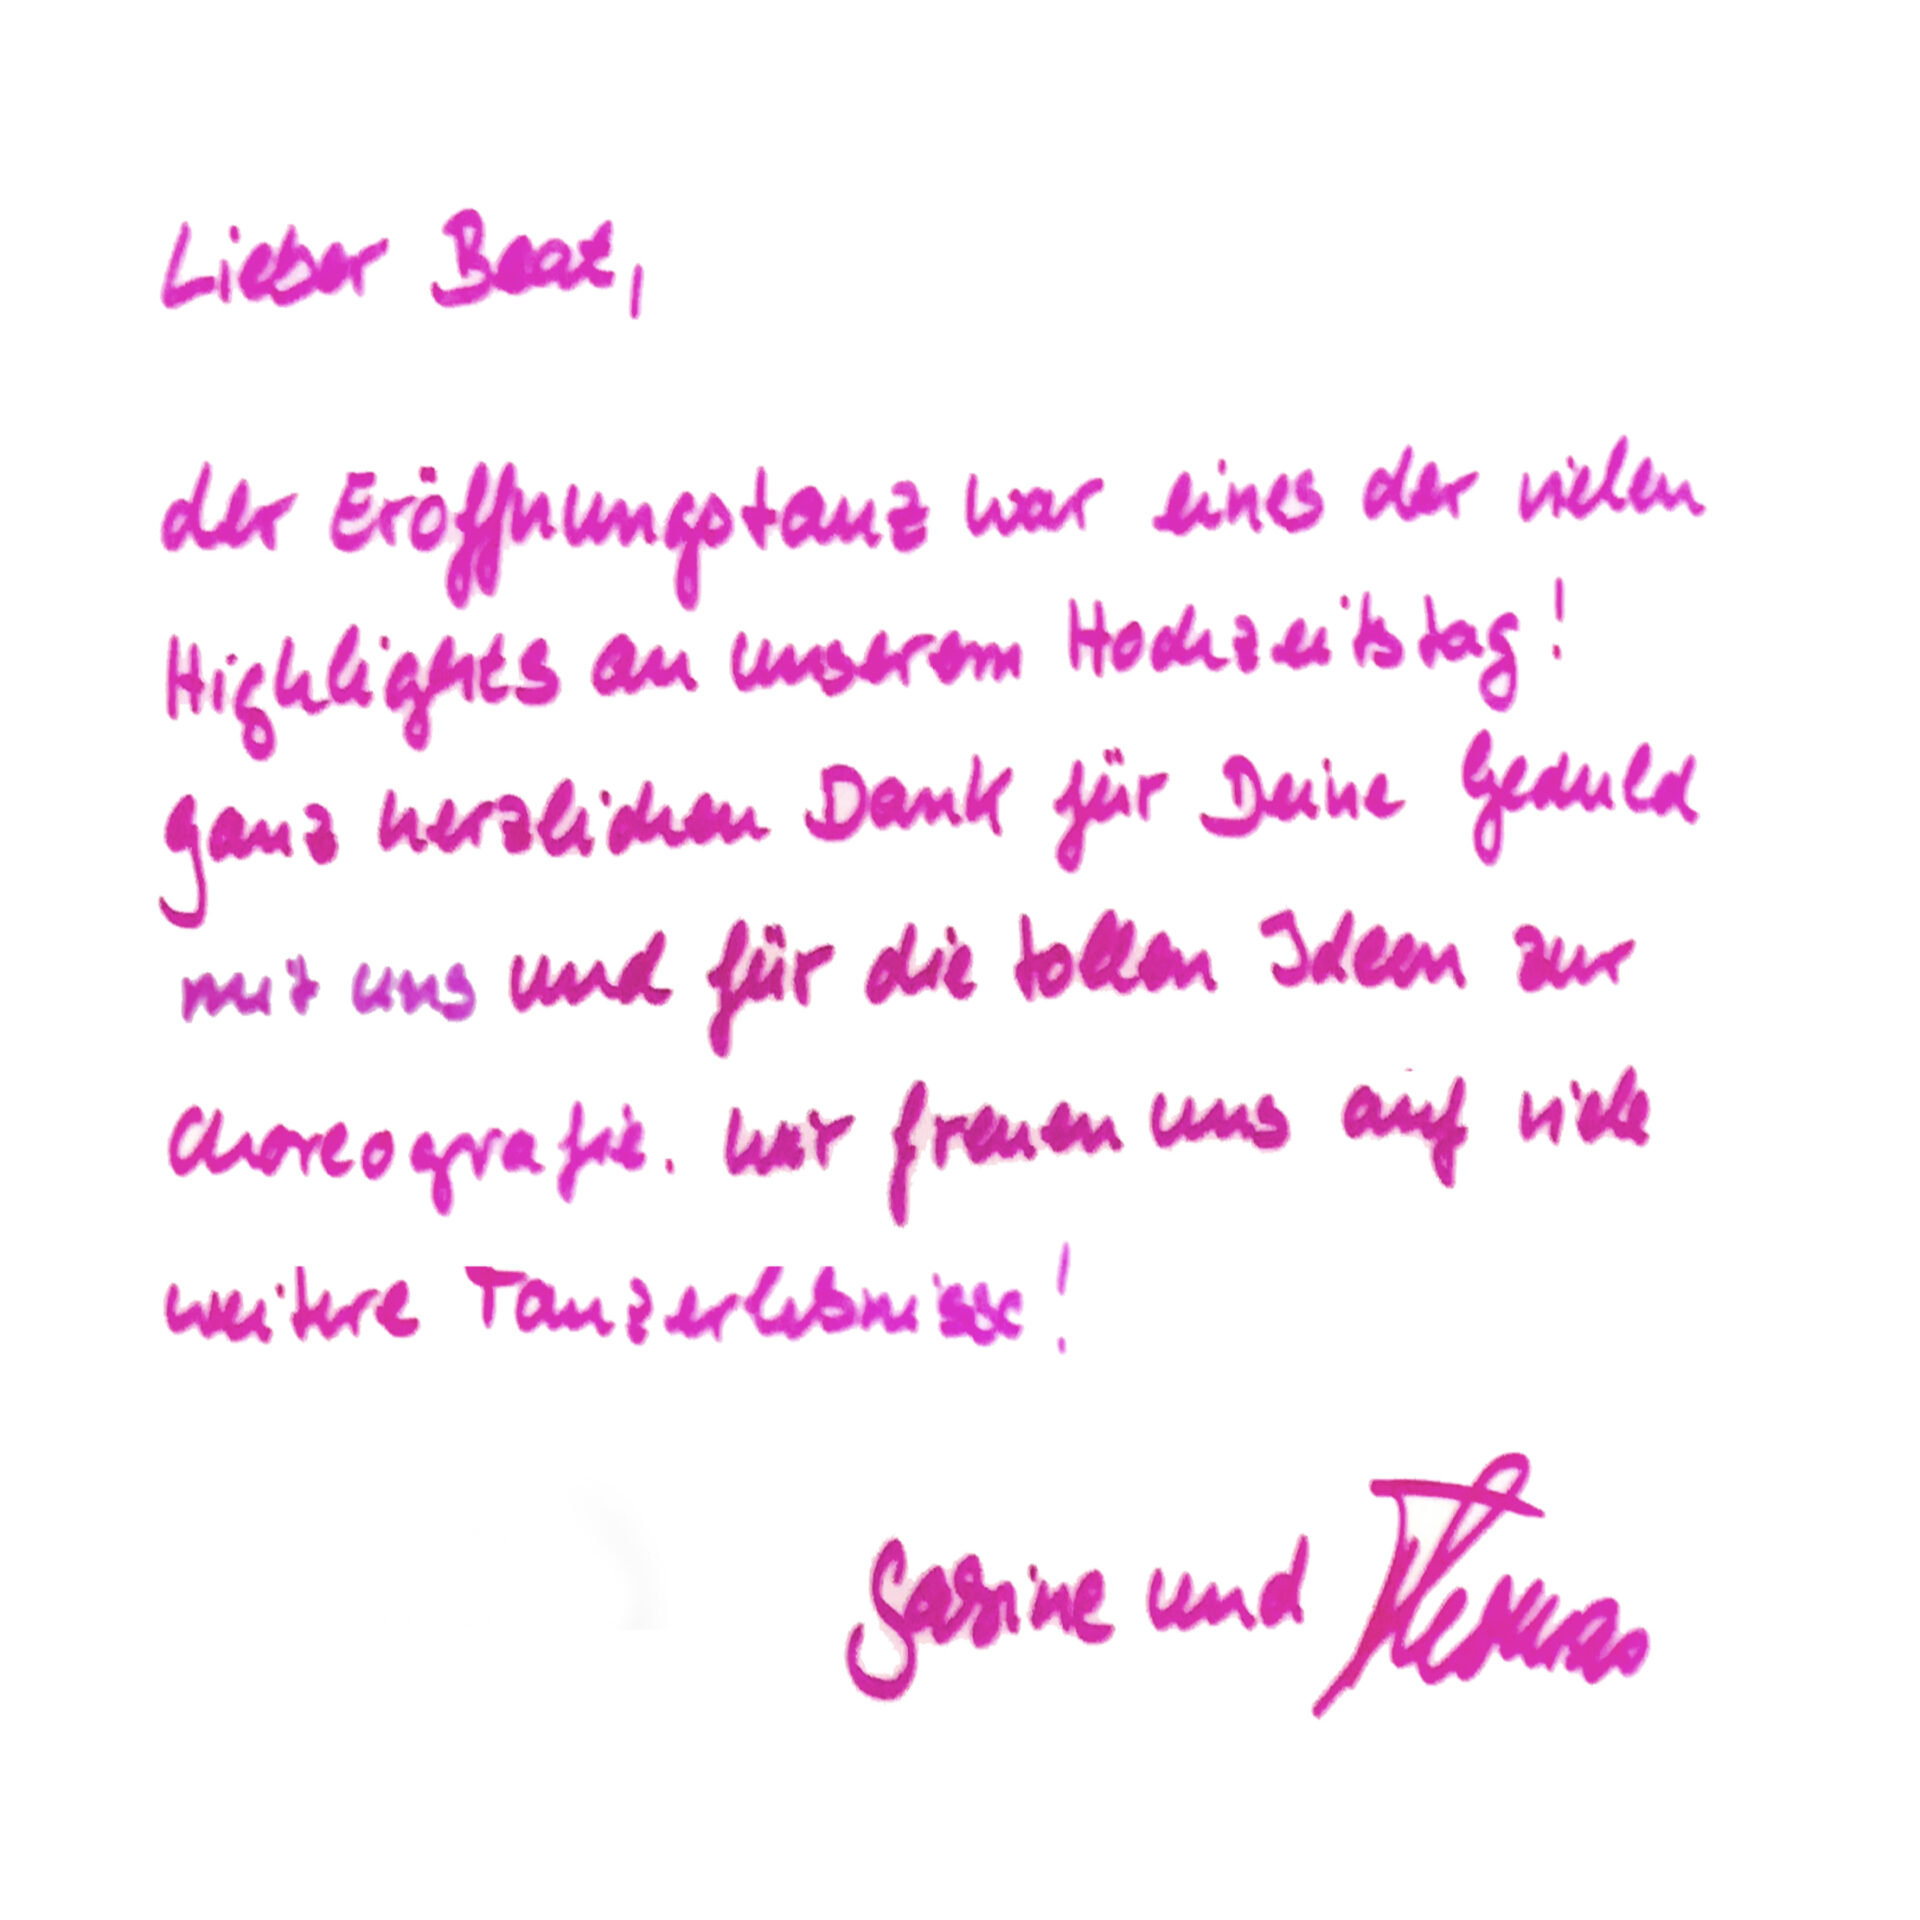 Lieber Beat,
der Eröffnungstanz war eines der vielen
Highlights an unserem Hochzeitstag!
ganz herzlichen Dank für Deine Geduld
mit uns und für die tollen Ideen zur
Choreografie. Wir freuen uns auf viele
weitere Tanzerlebnisse!
Sabine und Thomas